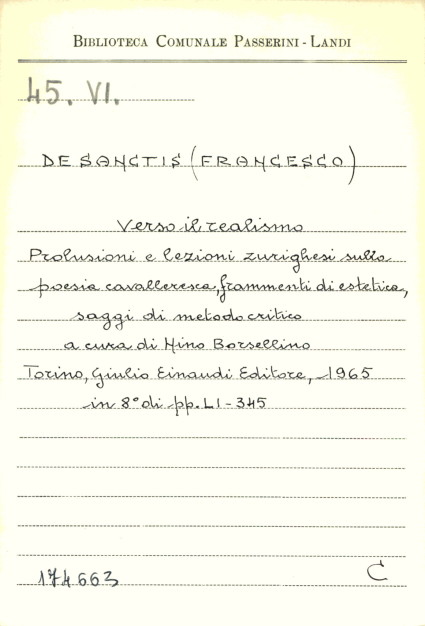 BIBLIOTECA COMUNALE PASSERINI - LANDI
45. VI.
DE SANCTIS (FRANCESCO)
Verso il realismo
Prolusioni e lezioni zurighesi sulla
poesia cavalleresca, frammenti di estetica,
saggi di metodo critico
a cura di Nino Borsellino
Torino, Giulio Einaudi Editore, 1965
in 8° di pp. LI - 345
174663
C